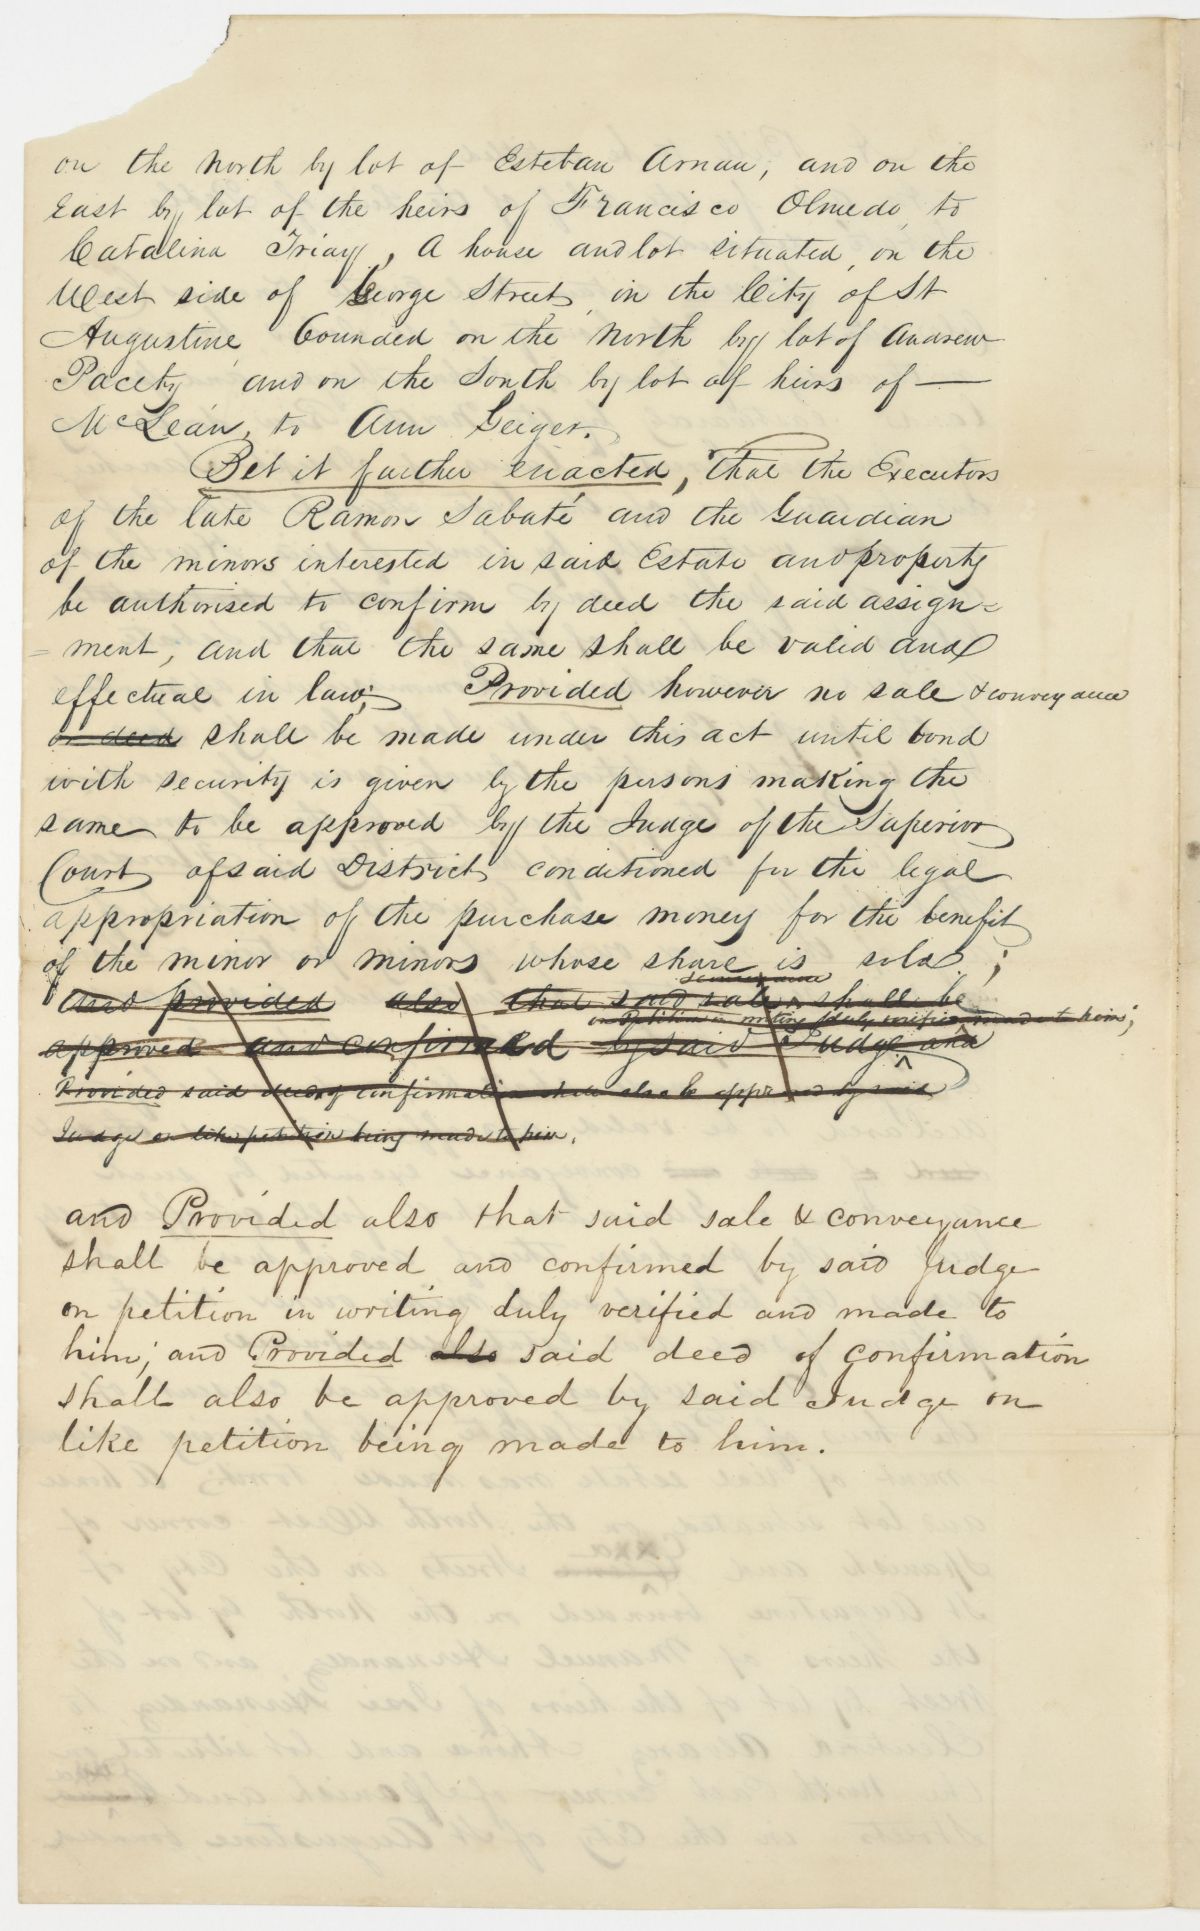 on the North by lot of Esteban Arnau, and on the
East by lot of the heirs of Francisco Olmedo, to
Catalina Triay, A house and lot situated, on the
West side of George Street, in the City of St
Augustine, bounded on the North by lot of Andrew
Pacety, and on the South by lot of heirs of —
McLean, to Ann Geiger.
Bet it further enacted, That the Executors
of the late Ramon Sabaté and the Guardian
of the minors interested in said Estate and property
be authorised to confirm by deed the said assign=
=ment; and that the same shall be valid and
effectual in law; Provided however no sale & conveyance
or deed shall be made under this act until bond
with security is given by the persons making the
same to be approved by the Judge of the Superior
Court of said District conditioned for the legal
appropriation of the purchase money for the benefit
of the minor or minors whose share is sold;
and provided also that said sale shall be
on Petition in writing duly verified made to him;
approved and confirmed by said Judge and
Provided said deed of confirmation shall also be approved by said
Judge on like petition being made to him.
and Provided also that said sale & conveyance
shall be approved and confirmed by said Judge
on petition in writing duly verified and made to
him; and Provided also said deed of confirmation
shall also be approved by said Judge on
like petition being made to him.